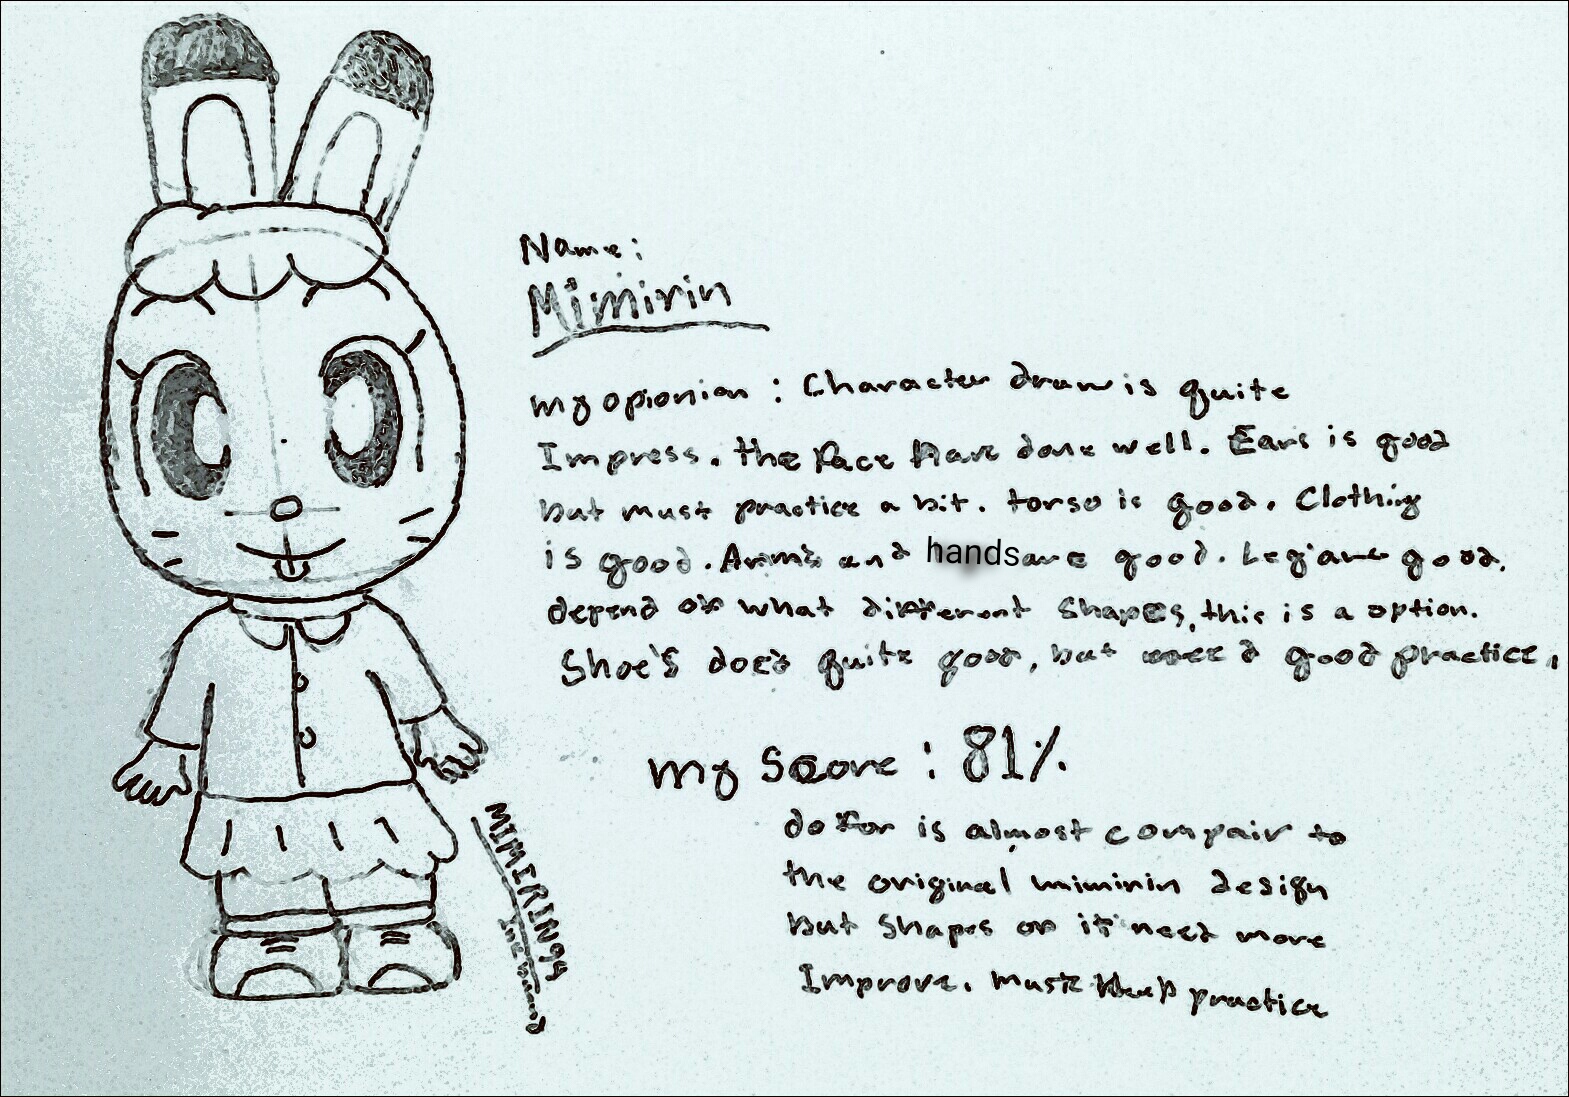 Name:
Mimirin
my opionion : Character draw is quite
Impress. the face have done well. Ears is good
but must practice a bit. torso is good. Clothing
is good. Arms and hands are good. Leg are good,
depend on what different shapes, this is a option.
Shoe's does quite good, but need good practice.
my Score : 81%
do for is almost compair to
the original mimirin design
but shapes on it need more
Improve. must keep practice
MIMIRIN99